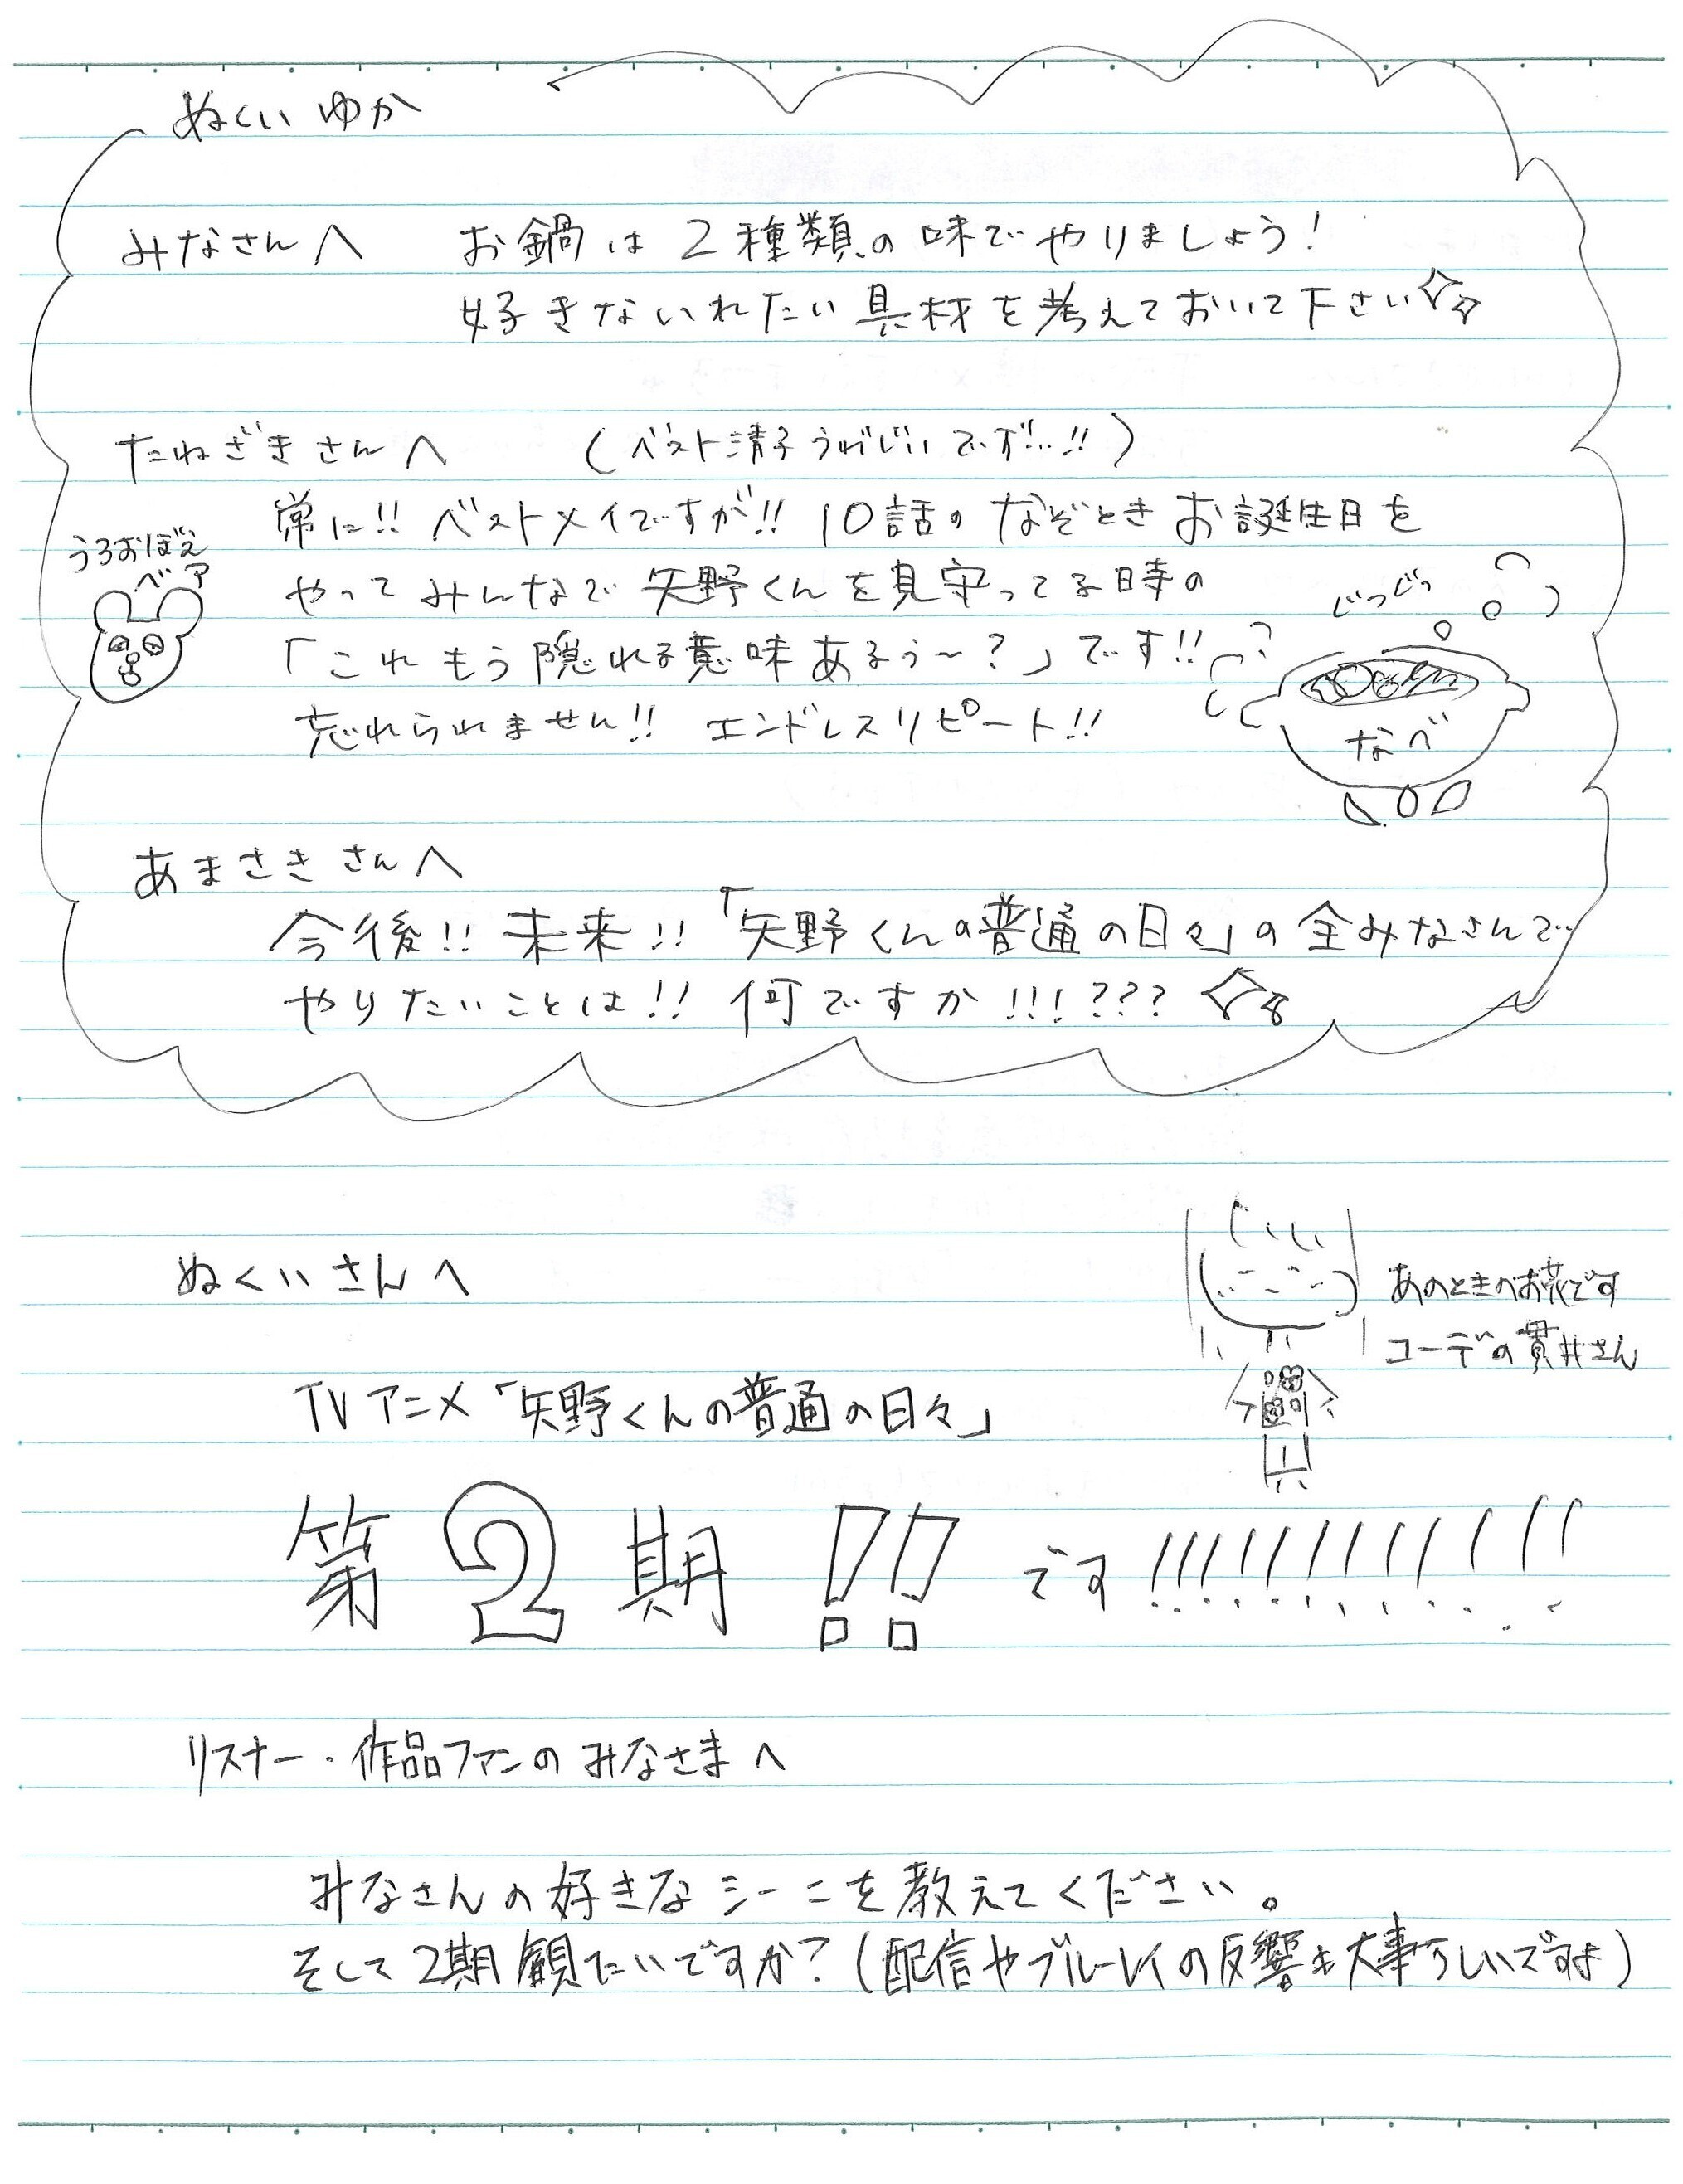 ぬくい ゆか
みなさんへ お鍋は2種類の味でやりましょう!
好きないれたい具材を考えておいて下さい
たねざきさんへ (ベスト清子うれじいでず…!!)
常に!! ベストメイですが!! 10話のなぞときお誕生日を
やってみんなで矢野くんを見守ってる時の
「これもう隠れる意味あるぅ〜?」です!!
忘れられません!! エンドレスリピート!!
うろおぼえ
ベア
じっじっ
なべ
あまさきさんへ
今後!! 未来!!「矢野くんの普通の日々」の全みなさんで
やりたいことは!! 何ですか!!!???
ぬくいさんへ
あのときのお花です
コーデの貫井さん
TVアニメ「矢野くんの普通の日々」
第2期!!です!!!!!!!!!!!!
リスナー・作品ファンのみなさまへ
みなさんの好きなシーンを教えてください。
そして2期観たいですか?(配信やブルーレイの反響も大事らしいですよ)